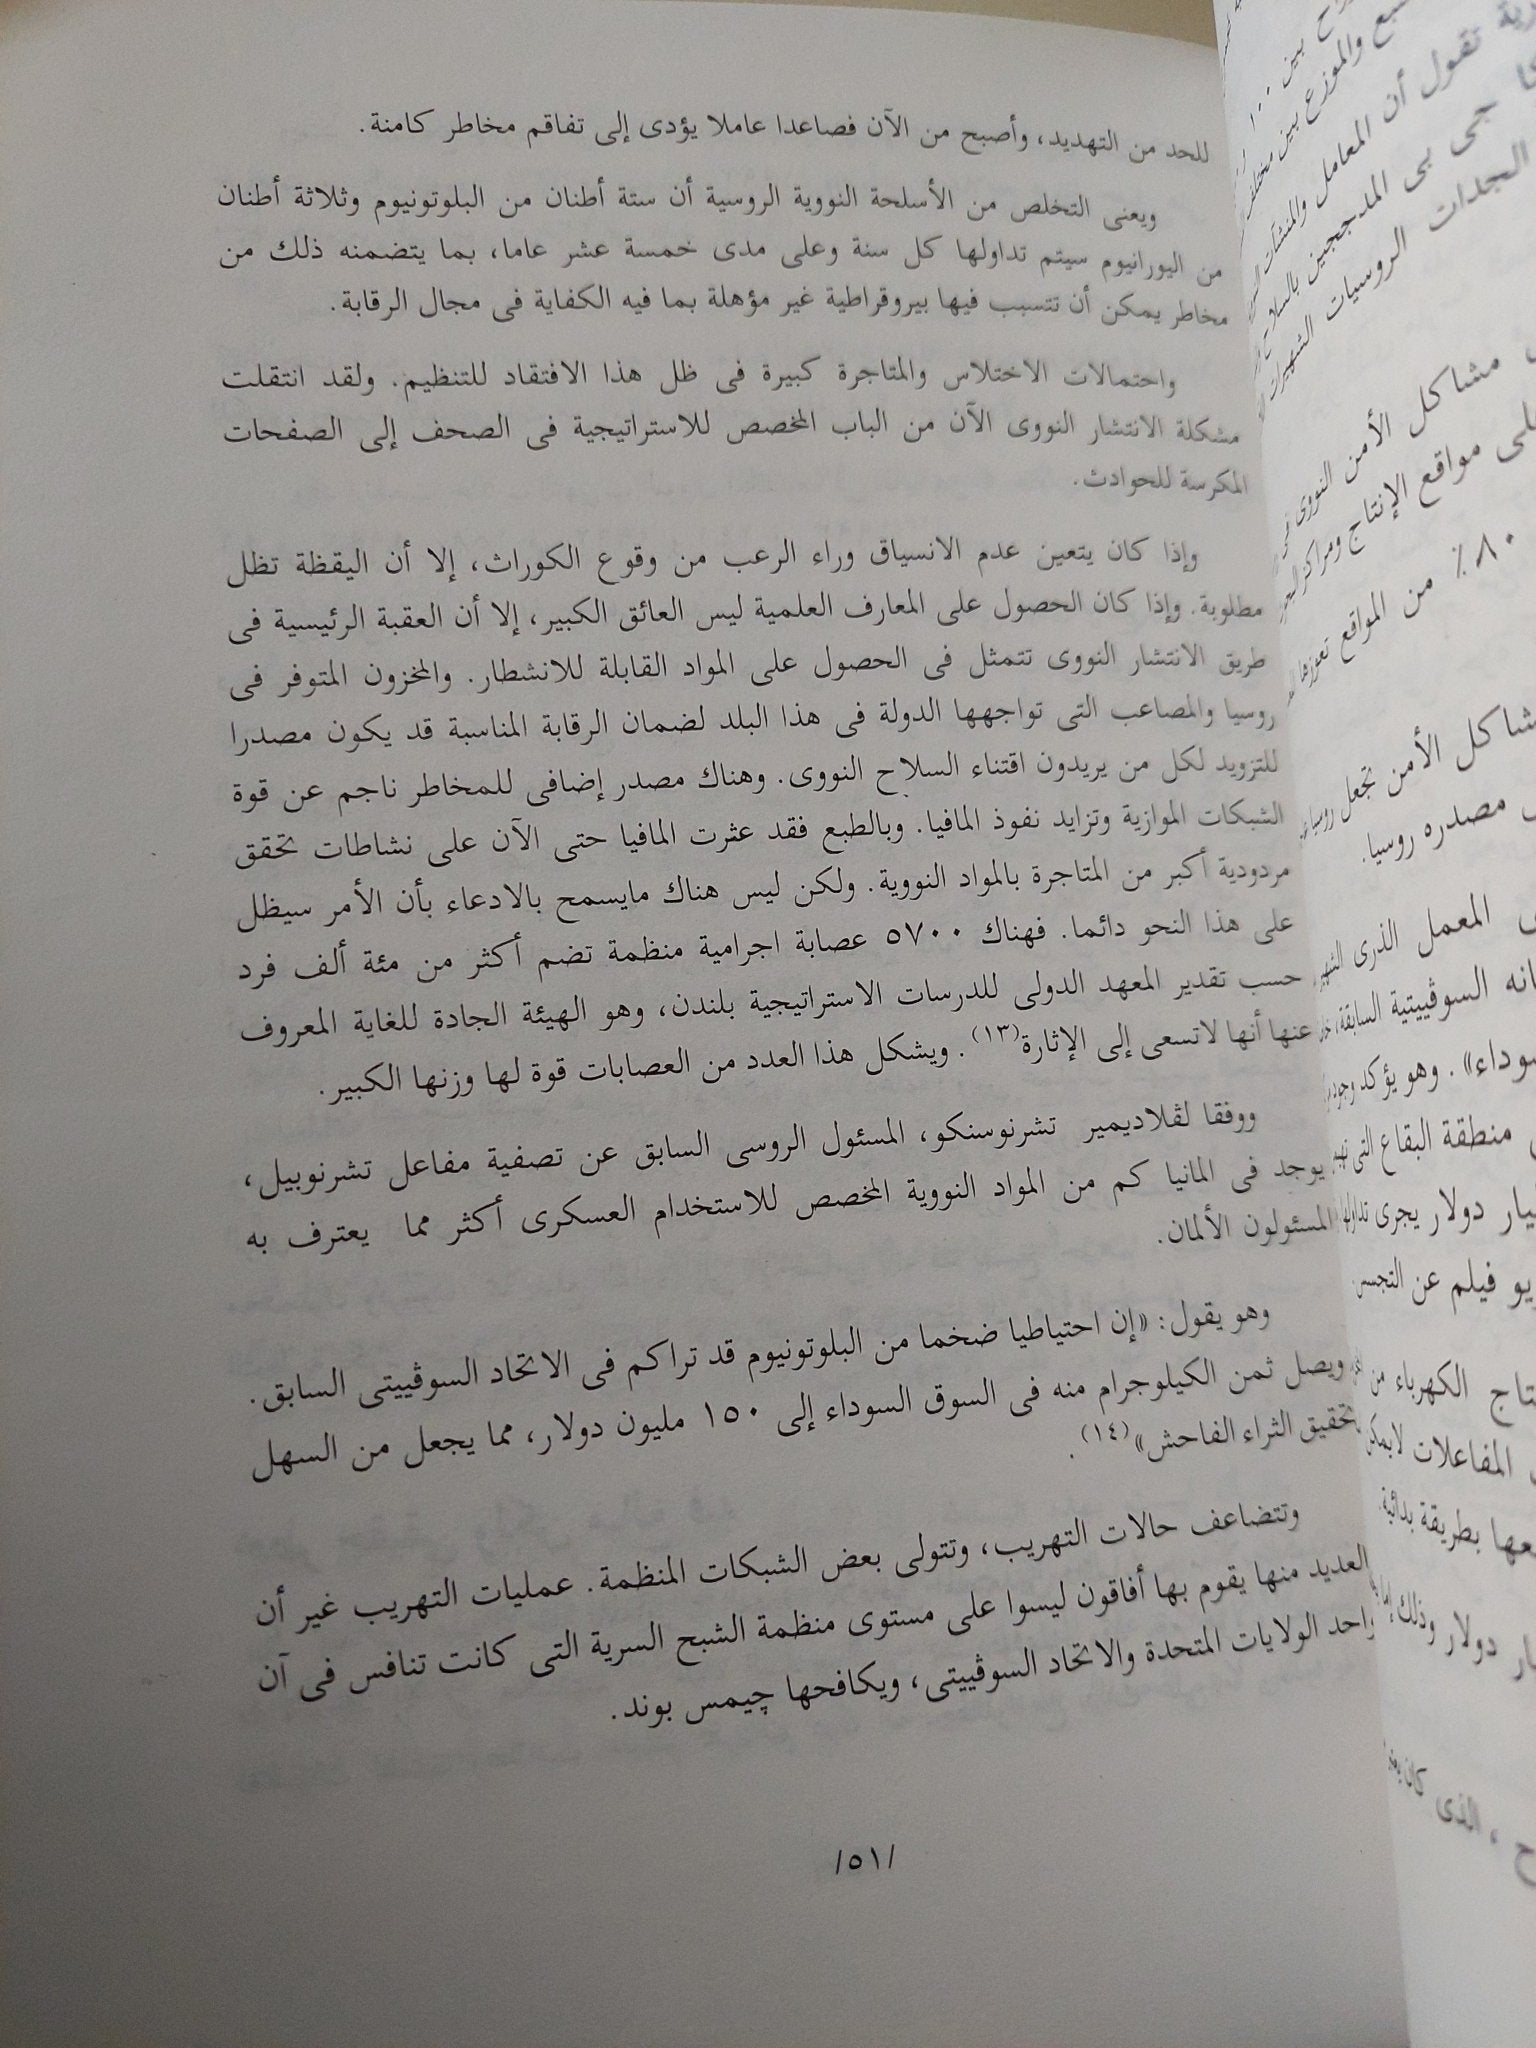 للحد من التهديد، وأصبح من الآن فصاعدا عاملا يؤدى إلى تفاقم مخاطر كامنة.
ويعنى التخلص من الأسلحة النووية الروسية أن ستة أطنان من البلوتونيوم وثلاثة أطنان
من اليورانيوم سيتم تداولها كل سنة وعلى مدى خمسة عشر عاما، بما يتضمنه ذلك من
مخاطر يمكن أن تتسبب فيها بيروقراطية غير مؤهلة بما فيه الكفاية فى مجال الرقابة.
واحتمالات الاختلاس والمتاجرة كبيرة فى ظل هذا الافتقاد للتنظيم. ولقد انتقلت
مشكلة الانتشار النووى الآن من الباب المخصص للاستراتيجية فى الصحف إلى الصفحات
المكرسة للحوادث.
وإذا كان يتعين عدم الانسياق وراء الرعب من وقوع الكوراث، إلا أن اليقظة تظل
مطلوبة. وإذا كان الحصول على المعارف العلمية ليس العائق الكبير، إلا أن العقبة الرئيسية فى
طريق الانتشار النووى تتمثل فى الحصول على المواد القابلة للانشطار. والمخزون المتوفر فى
روسيا والمصاعب التى تواجهها الدولة فى هذا البلد لضمان الرقابة المناسبة قد يكون مصدرا
للتزويد لكل من يريدون اقتناء السلاح النووى. وهناك مصدر إضافى للمخاطر ناجم عن قوة
الشبكات الموازية وتزايد نفوذ المافيا. وبالطبع فقد عثرت المافيا حتى الآن على نشاطات تحقق
مردودية أكبر من المتاجرة بالمواد النووية. ولكن ليس هناك مايسمح بالادعاء بأن الأمر سيظل
على هذا النحو دائما. فهناك ٥٧٠٠ عصابة اجرامية منظمة تضم أكثر من مئة ألف فرد
حسب تقدير المعهد الدولى للدرسات الاستراتيجية بلندن، وهو الهيئة الجادة للغاية المعروف
عنها أنها لاتسعى إلى الإثارة(١٣). ويشكل هذا العدد من العصابات قوة لها وزنها الكبير.
ووفقا لڤلاديمير تشرنوسنكو، المسئول الروسى السابق عن تصفية مفاعل تشرنوبيل،
يوجد فى المانيا كم من المواد النووية المخصص للاستخدام العسكرى أكثر مما يعترف به
المسئولون الألمان.
وهو يقول: «إن احتياطيا ضخما من البلوتونيوم قد تراكم فى الاتحاد السوڤييتى السابق.
ويصل ثمن الكيلوجرام منه فى السوق السوداء إلى ١٥٠ مليون دولار، مما يجعل من السهل
تحقيق الثراء الفاحش»(١٤).
وتتضاعف حالات التهريب، وتتولى بعض الشبكات المنظمة. عمليات التهريب غير أن
العديد منها يقوم بها أفاقون ليسوا على مستوى منظمة الشبح السرية التى كانت تنافس فى آن
واحد الولايات المتحدة والاتحاد السوڤييتى، ويكافحها چيمس بوند.
/٥١/
بين ١٠٠
والموزع بين
تقول أن المعامل والمنشآت
جى بى المدججين بالسلاح
الجدات الروسيات الشهيرات
مشاكل الأمن النووى
مواقع الإنتاج ومراكز
٨٠٪ من المواقع تعوزها
الأمن تجعل روسيا
مصدره روسيا.
المعمل الذرى
السوڤييتية السابقة،
وهو يؤكد
منطقة البقاع التى
دولار يجرى تداولها
فيلم عن
الكهرباء من
المفاعلات لايمكن
بطريقة بدائية.
دولار وذلك